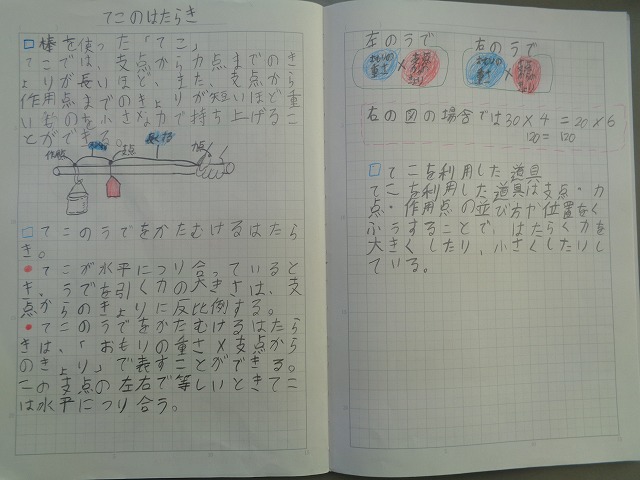 てこのはたらき
棒を使った「てこ」
てこでは、支点から力点までのき
ょりが長いほど、また、支点から
作用点までのきょりが短いほど重
いものを小さな力で持ち上げるこ
とができる。
作用点 支点 力点
てこのうでをかたむけるはたら
き。
てこが水平につり合っていると
き、うでを引く力の大きさは、支
点からのきょりに反比例する。
てこのうでをかたむけるはたら
きは、「おもりの重さ×支点から
のきょり」で表すことができる。
この支点の左右で等しいときてこ
は水平につり合う。
左のうで 右のうで
おもりの重さ × 支点からのきょり おもりの重さ × 支点からのきょり
右の図の場合では30×4=20×6
120=120
てこを利用した道具
てこを利用した道具は支点・力
点・作用点の並び方や位置をく
ふうすることで、はたらく力を
大きくしたり、小さくしたりし
ている。